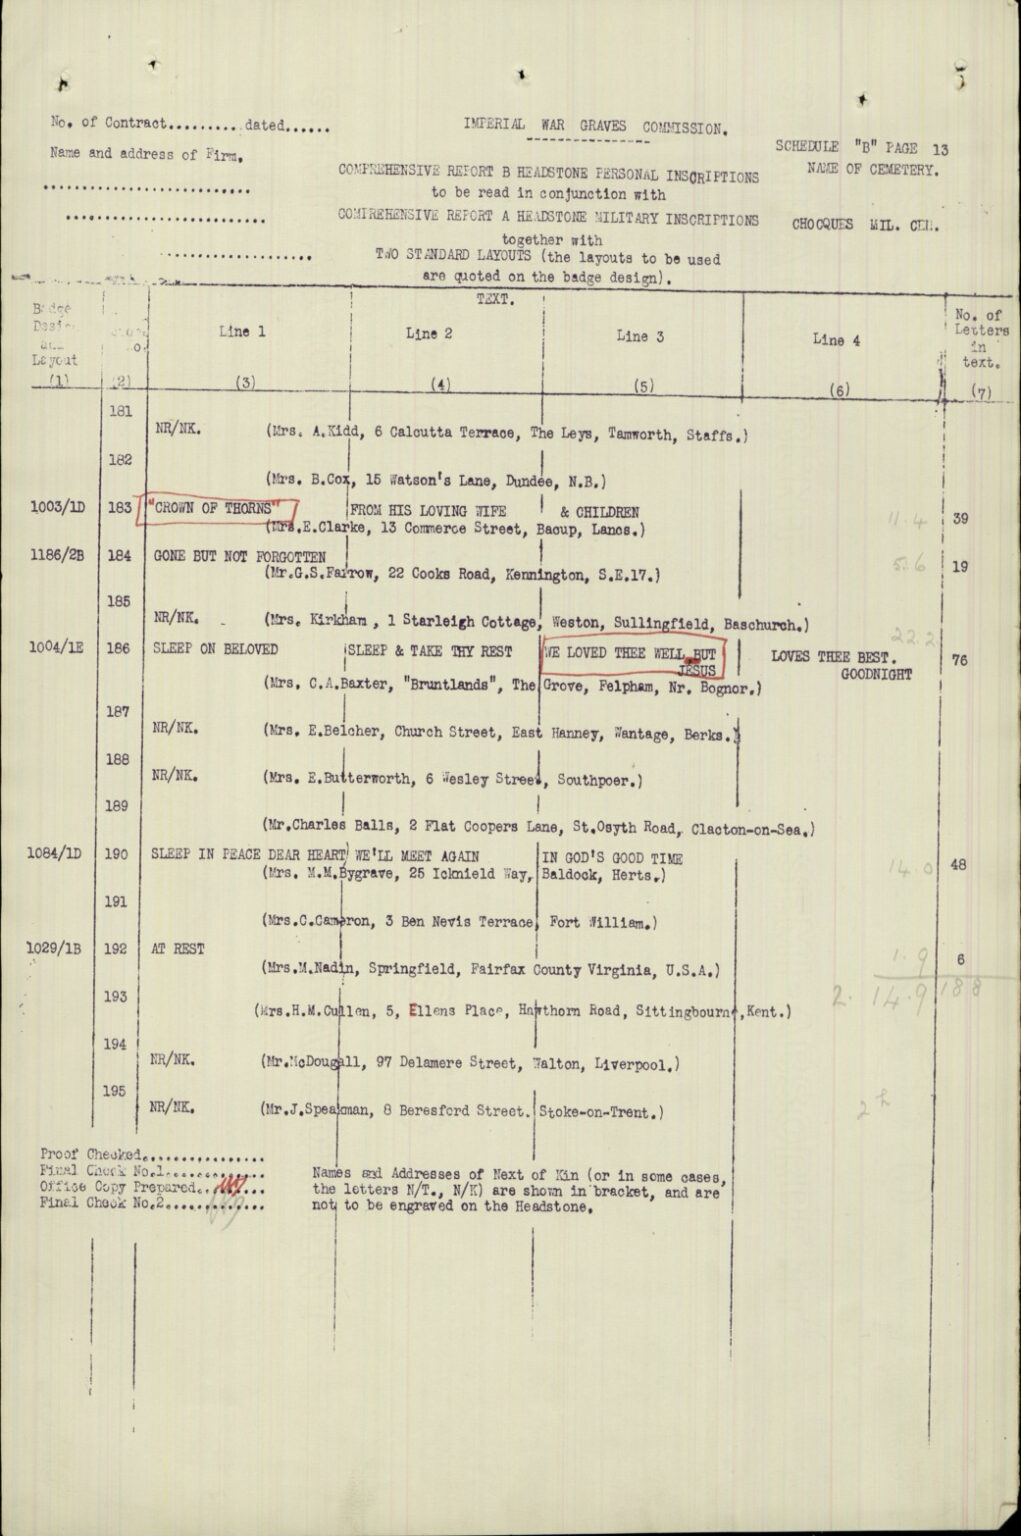 No. of Contract.........dated......
IMPERIAL WAR GRAVES COMMISSION.
SCHEDULE "B" PAGE 13
Name and address of Firm.
NAME OF CEMETERY.
COMPREHENSIVE REPORT B HEADSTONE PERSONAL INSCRIPTIONS
to be read in conjunction with
COMPREHENSIVE REPORT A HEADSTONE MILITARY INSCRIPTIONS
CHOCQUES MIL. CEM.
together with
TWO STANDARD LAYOUTS (the layouts to be used
are quoted on the badge design).
TEXT.
Badge Design and Layout (1)
(2)
Line 1 (3)
Line 2 (4)
Line 3 (5)
Line 4 (6)
No. of Letters in text. (7)
181
NR/NK. (Mrs. A.Kidd, 6 Calcutta Terrace, The Leys, Tamworth, Staffs.)
182
(Mrs. B.Cox, 15 Watson's Lane, Dundee, N.B.)
1003/1D 183 "CROWN OF THORNS" FROM HIS LOVING WIFE & CHILDREN 11.4 39
(Mrs.E.Clarke, 13 Commerce Street, Bacup, Lancs.)
1186/2B 184 GONE BUT NOT FORGOTTEN 5.6 19
(Mr.G.S.Farrow, 22 Cooks Road, Kennington, S.E.17.)
185
NR/NK. (Mrs. Kirkham, 1 Starleigh Cottage, Weston, Sullingfield, Baschurch.)
1004/1E 186 SLEEP ON BELOVED SLEEP & TAKE THY REST WE LOVED THEE WELL BUT JESUS LOVES THEE BEST. GOODNIGHT 22.2 76
(Mrs. C.A.Baxter, "Bruntlands", The Grove, Felpham, Nr. Bognor.)
187
NR/NK. (Mrs. E.Belcher, Church Street, East Hanney, Wantage, Berks.)
188
NR/NK. (Mrs. E.Butterworth, 6 Wesley Street, Southpoer.)
189
(Mr.Charles Balls, 2 Flat Coopers Lane, St.Osyth Road, Clacton-on-Sea.)
1084/1D 190 SLEEP IN PEACE DEAR HEART WE'LL MEET AGAIN IN GOD'S GOOD TIME 14.0 48
(Mrs. M.M.Bygrave, 25 Icknield Way, Baldock, Herts.)
191
(Mrs.C.Cameron, 3 Ben Nevis Terrace, Fort William.)
1029/1B 192 AT REST 1.9 6
(Mrs.M.Nadin, Springfield, Fairfax County Virginia, U.S.A.)
2. 14.9 188
193
(Mrs.H.M.Cullen, 5, Ellens Place, Hawthorn Road, Sittingbourne, Kent.)
194
NR/NK. (Mr.McDougall, 97 Delamere Street, Walton, Liverpool.)
195
NR/NK. (Mr.J.Speakman, 8 Beresford Street. Stoke-on-Trent.)
Proof Checked................
Final Check No.1.............
Office Copy Prepared.........
Final Check No.2.............
Names and Addresses of Next of Kin (or in some cases,
the letters N/T., N/K) are shown in bracket, and are
not to be engraved on the Headstone.